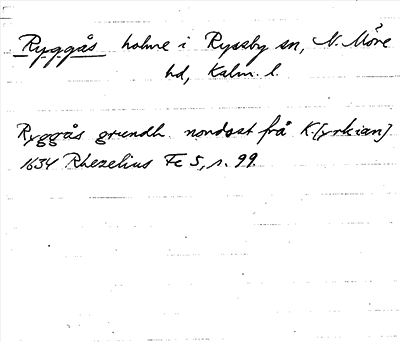 Ryggås holme i Ryssby sn, N. Möre
hd, Kalm. l.
Ryggås grundh. nordost frå K.[yrkian]
1634 Rhezelius Fc 5, s. 99.